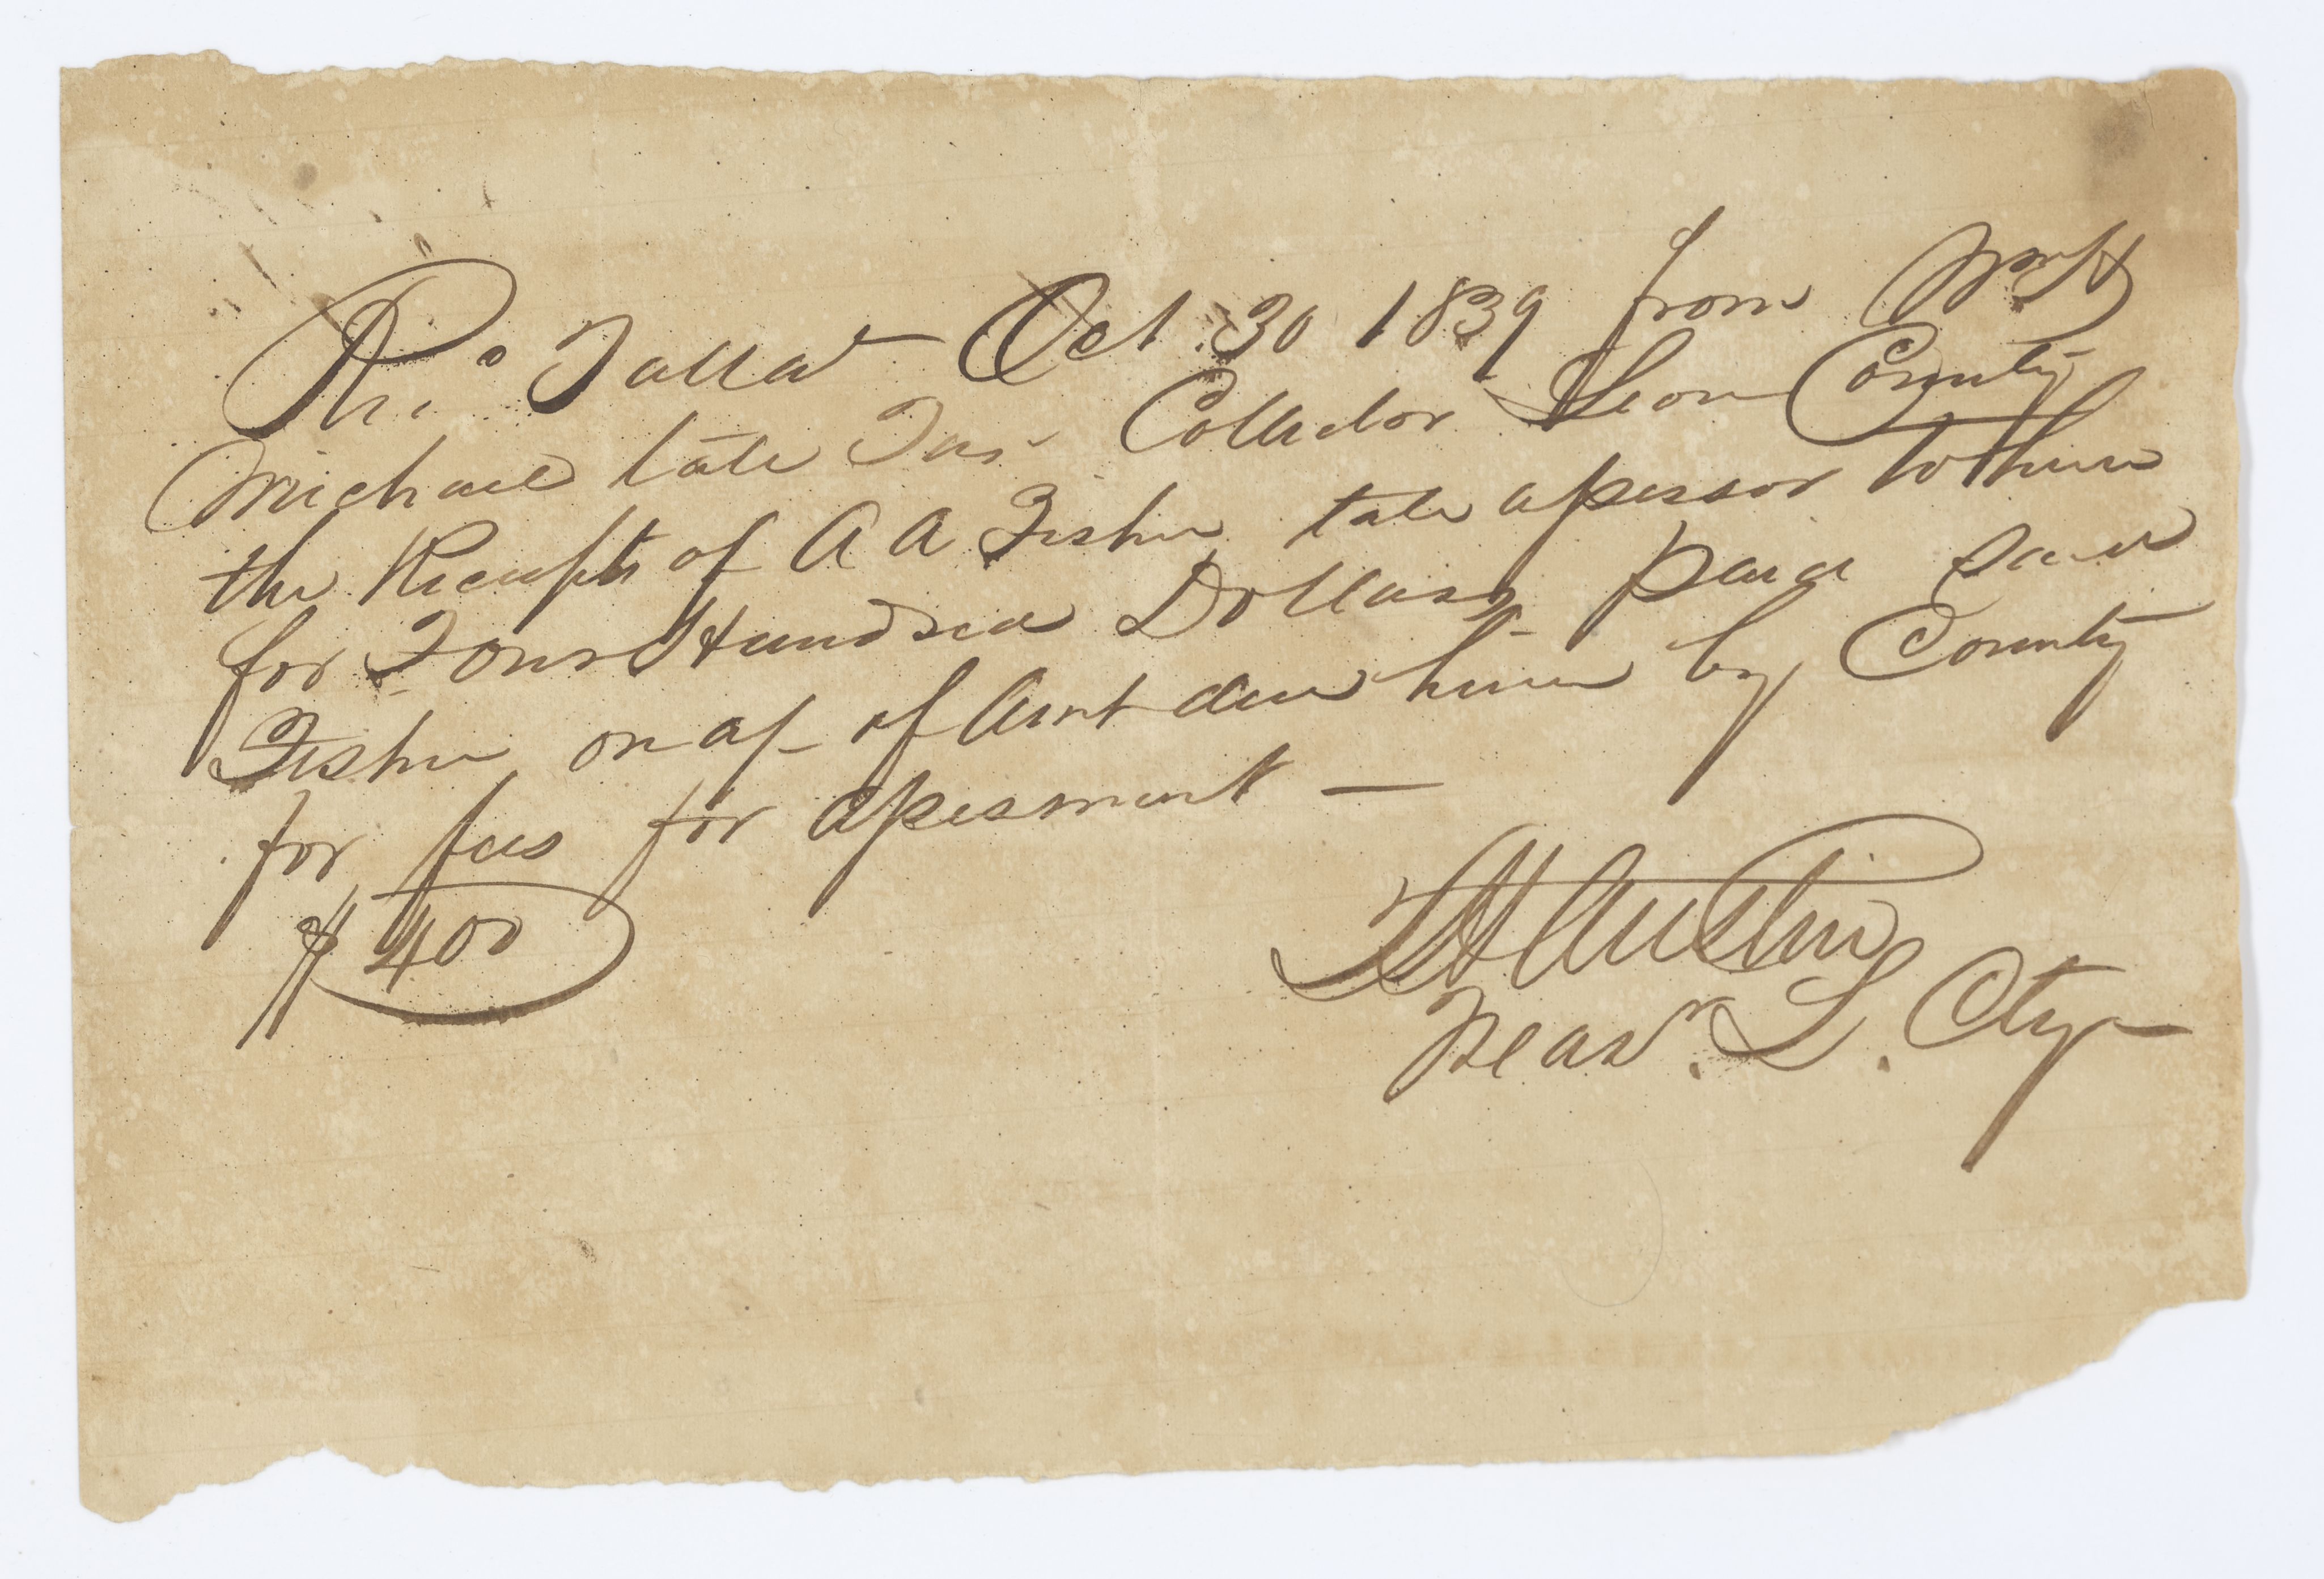 Rec.d Talla Oct 30 1839 from Wm H
Michael late Tax Collector Leon County
the Receipt of A A Fisher late assessor to him
for Four Hundred Dollars paid said
Fisher on a/c of Amt due him by County
for fees for assessment —
$400
Austin
Treasr. L. Cty